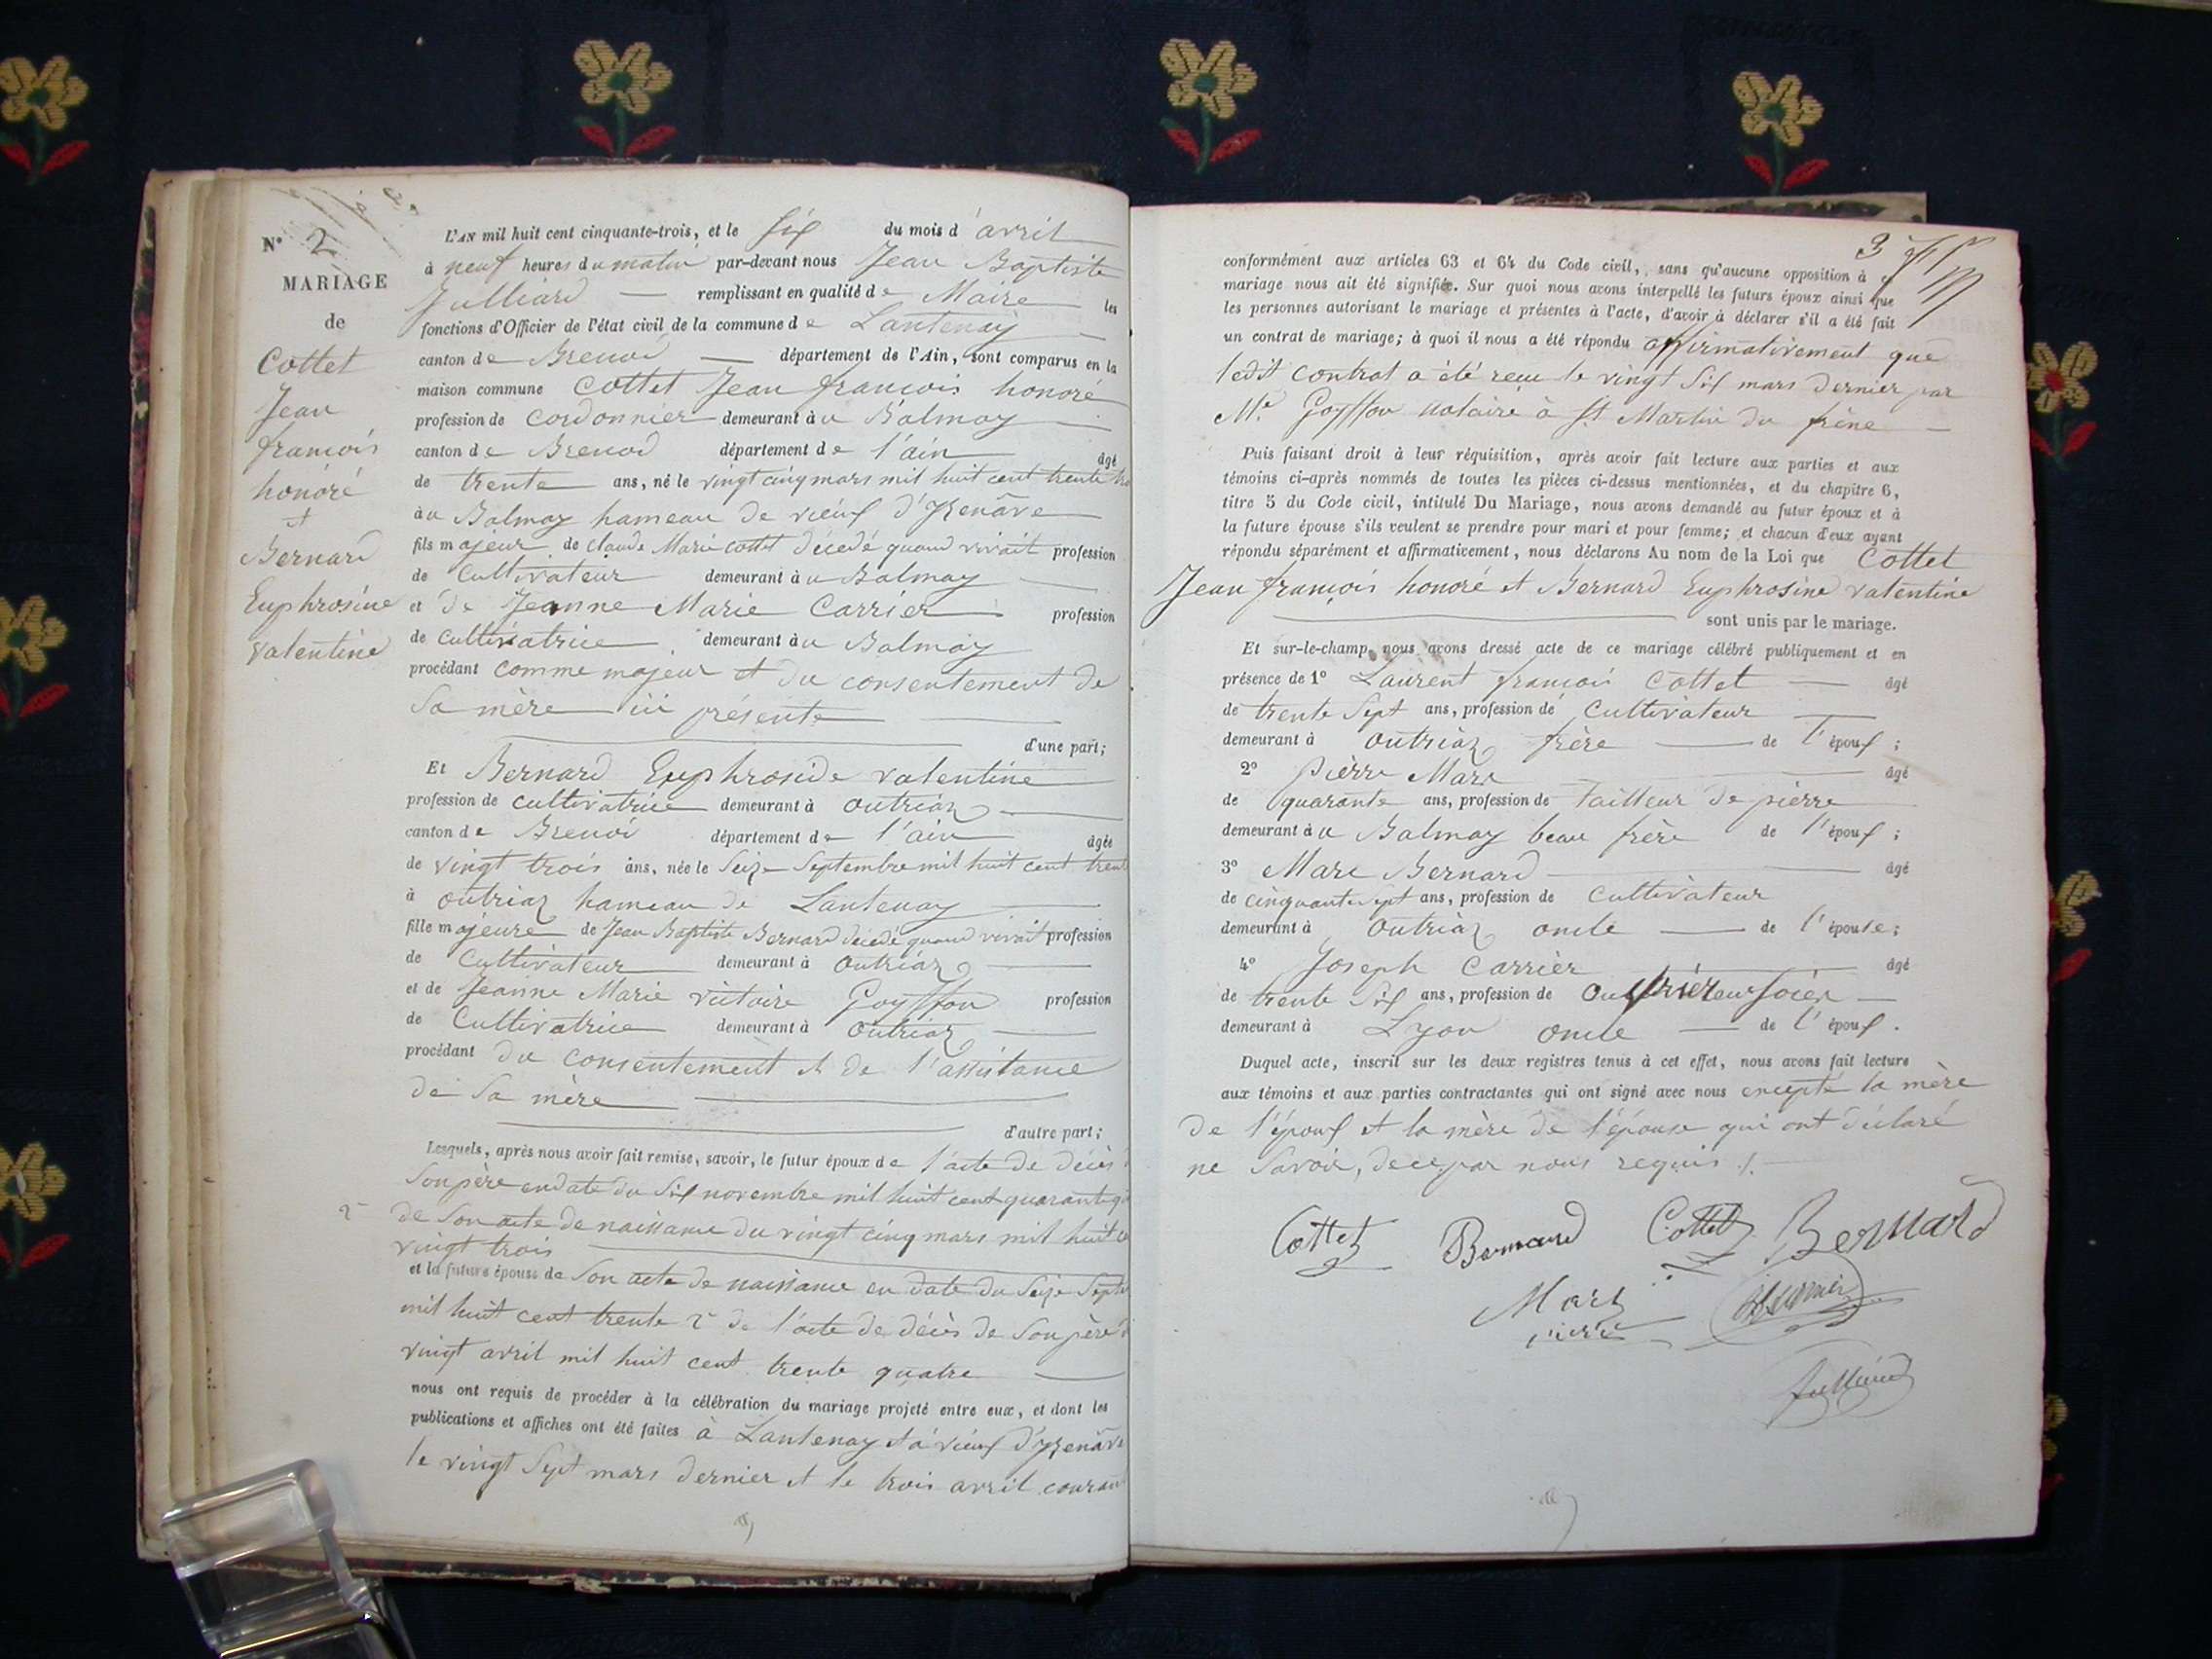 N° 2
MARIAGE
de
Cottet
Jean
françois
honoré
et
Bernard
Euphrosine
valentine
L'AN mil huit cent cinquante-trois, et le six du mois d'avril
à neuf heures du matin par-devant nous Jean Baptiste
Julliard remplissant en qualité de Maire les
fonctions d'Officier de l'état civil de la commune de Lantenay
canton de Brenod département de l'Ain, sont comparus en la
maison commune Cottet Jean françois honoré
profession de cordonnier demeurant à u Balmay
canton de Brenod département de l'ain âgé
de trente ans, né le vingt cinq mars mil huit cent trente
àu Balmay hameau de vieux d'Izenâve
fils majeur de claude Marie cottet décédé quand vivait profession
de Cultivateur demeurant à u Balmay
et de Jeanne Marie Carrier profession
de cultivatrice demeurant àu Balmay
procédant comme majeur et du consentement de
Sa mère ici présente
d'une part;
Et Bernard Euphroside valentine
profession de cultivatrice demeurant à outriaz
canton de Brenod département de l'ain âgée
de vingt trois ans, née le Seize Septembre mil huit cent trent
à outriaz hameau de Lantenay
fille majeure de Jean Baptiste Bernard décédé quand vivait profession
de Cultivateur demeurant à outriaz
et de Jeanne Marie victoire Goyffon profession
de Cultivatrice demeurant à outriaz
procédant du consentement et de l'assistance
de Sa mère
d'autre part;
Lesquels, après nous avoir fait remise, savoir, le futur époux de l'acte de décès
Son père en date du Six novembre mil huit cent quarante
2° de Son acte de naissance du vingt cinq mars mil huit
vingt trois
et la future épouse de Son acte de naissance en date du Seize Septe
mil huit cent trente 2° de l'acte de décès de Son père
vingt avril mil huit cent trente quatre
nous ont requis de procéder à la célébration du mariage projeté entre eux, et dont les
publications et affiches ont été faites à Lantenay et à vieux d'yzenâve
le vingt Sept mars dernier et le trois avril couran
3
conformément aux articles 63 et 64 du Code civil, sans qu'aucune opposition à ce
mariage nous ait été signifiée. Sur quoi nous avons interpellé les futurs époux ainsi que
les personnes autorisant le mariage et présentes à l'acte, d'avoir à déclarer s'il a été fait
un contrat de mariage; à quoi il nous a été répondu affirmativement que
ledit contrat a été reçu le vingt Six mars dernier par
Me Goyffon notaire à St Martin du frêne
Puis faisant droit à leur réquisition, après avoir fait lecture aux parties et aux
témoins ci-après nommés de toutes les pièces ci-dessus mentionnées, et du chapitre 6,
titre 5 du Code civil, intitulé Du Mariage, nous avons demandé au futur époux et à
la future épouse s'ils veulent se prendre pour mari et pour femme; et chacun d'eux ayant
répondu séparément et affirmativement, nous déclarons Au nom de la Loi que Cottet
Jean françois honoré et Bernard Euphrosine valentine
sont unis par le mariage.
Et sur-le-champ nous avons dressé acte de ce mariage célébré publiquement et en
présence de 1° Laurent françois Cottet âgé
de trente Sept ans, profession de Cultivateur
demeurant à outriaz frère de l'époux;
2° pierre Marc âgé
de quarante ans, profession de tailleur de pierre
demeurant à u Balmay beau frère de l'époux;
3° Marc Bernard âgé
de cinquante Sept ans, profession de Cultivateur
demeurant à outriaz oncle de l'épouse;
4° Joseph Carrier âgé
de trente Six ans, profession de
demeurant à Lyon oncle de l'époux.
Duquel acte, inscrit sur les deux registres tenus à cet effet, nous avons fait lecture
aux témoins et aux parties contractantes qui ont signé avec nous excepté la mère
de l'époux et la mère de l'épouse qui ont déclaré
ne Savoir, de ce par nous requis /.
Cottet Bernard Cottet Bernard
Marc
pierre
Julliard